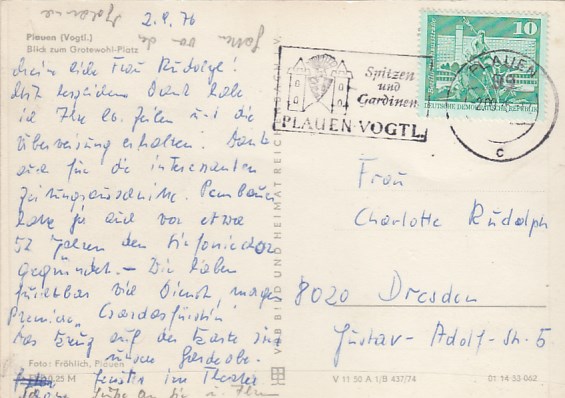 2.9.76
Plauen (Vogtl.)
Blick zum Grotewohl-Platz
Meine liebe Frau Rudolph!
Mit herzlichem Dank habe
ich Ihre lb. Zeilen und die
Überweisung erhalten. Danke
auch für die interessanten
Zeitungsausschnitte. Pembaur
habe ja auch vor etwa
52 Jahren den Sinfoniechor
gegründet. - Wir haben
furchtbar viel Dienst, morgen
Premiere "Csardasfürstin"
das Kreuz auf der Karte sind
unsere Garderobe-
Fenster im Theater
Foto: Fröhlich, Plauen
0.25 M
VEB BILD UND HEIMAT REICHENBACH I. V.
V 11 50 A 1/B 437/74
01 14 53 062
10
DEUTSCHE DEMOKRATISCHE REPUBLIK
Spitzen
und
Gardinen
PLAUEN-VOGTL.
PLAUEN
c
Frau
Charlotte Rudolph
8020 Dresden
Gustav-Adolf-Str. 5